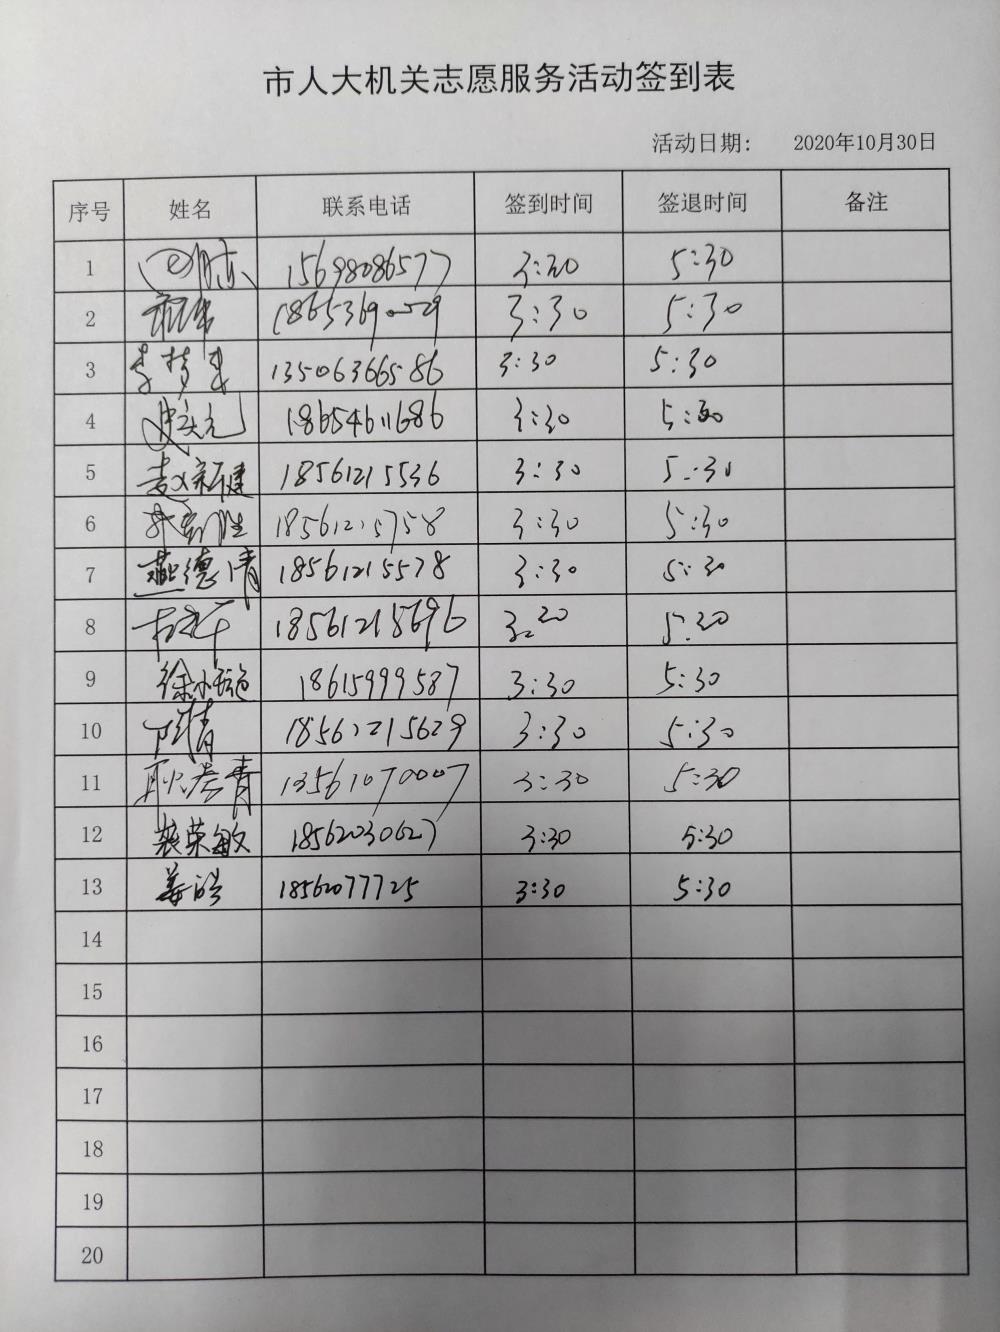 市人大机关志愿服务活动签到表
活动日期： 2020年10月30日
序号 姓名 联系电话 签到时间 签退时间 备注
1 15698086577 3:30 5:30
2 3:30 5:30
3 13506366586 3:30 5:30
4 18654611686 3:30 5:30
5 赵新建 18561215536 3:30 5:30
6 18561215758 3:30 5:30
7 燕德清 18561215578 3:30 5:30
8 18561218696 3:30 5:30
9 徐小璇 18615999587 3:30 5:30
10 18561215629 3:30 5:30
11 耿春青 13561070007 3:30 5:30
12 裴荣敏 18562030627 3:30 5:30
13 姜皓 18562077725 3:30 5:30
14
15
16
17
18
19
20